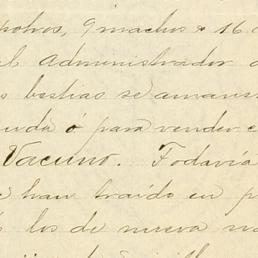 potros, 9 machos & 16
al Administrador
bestias se aman
ó para vender
Vacuno. Todavía
han traído en p
los de nueva